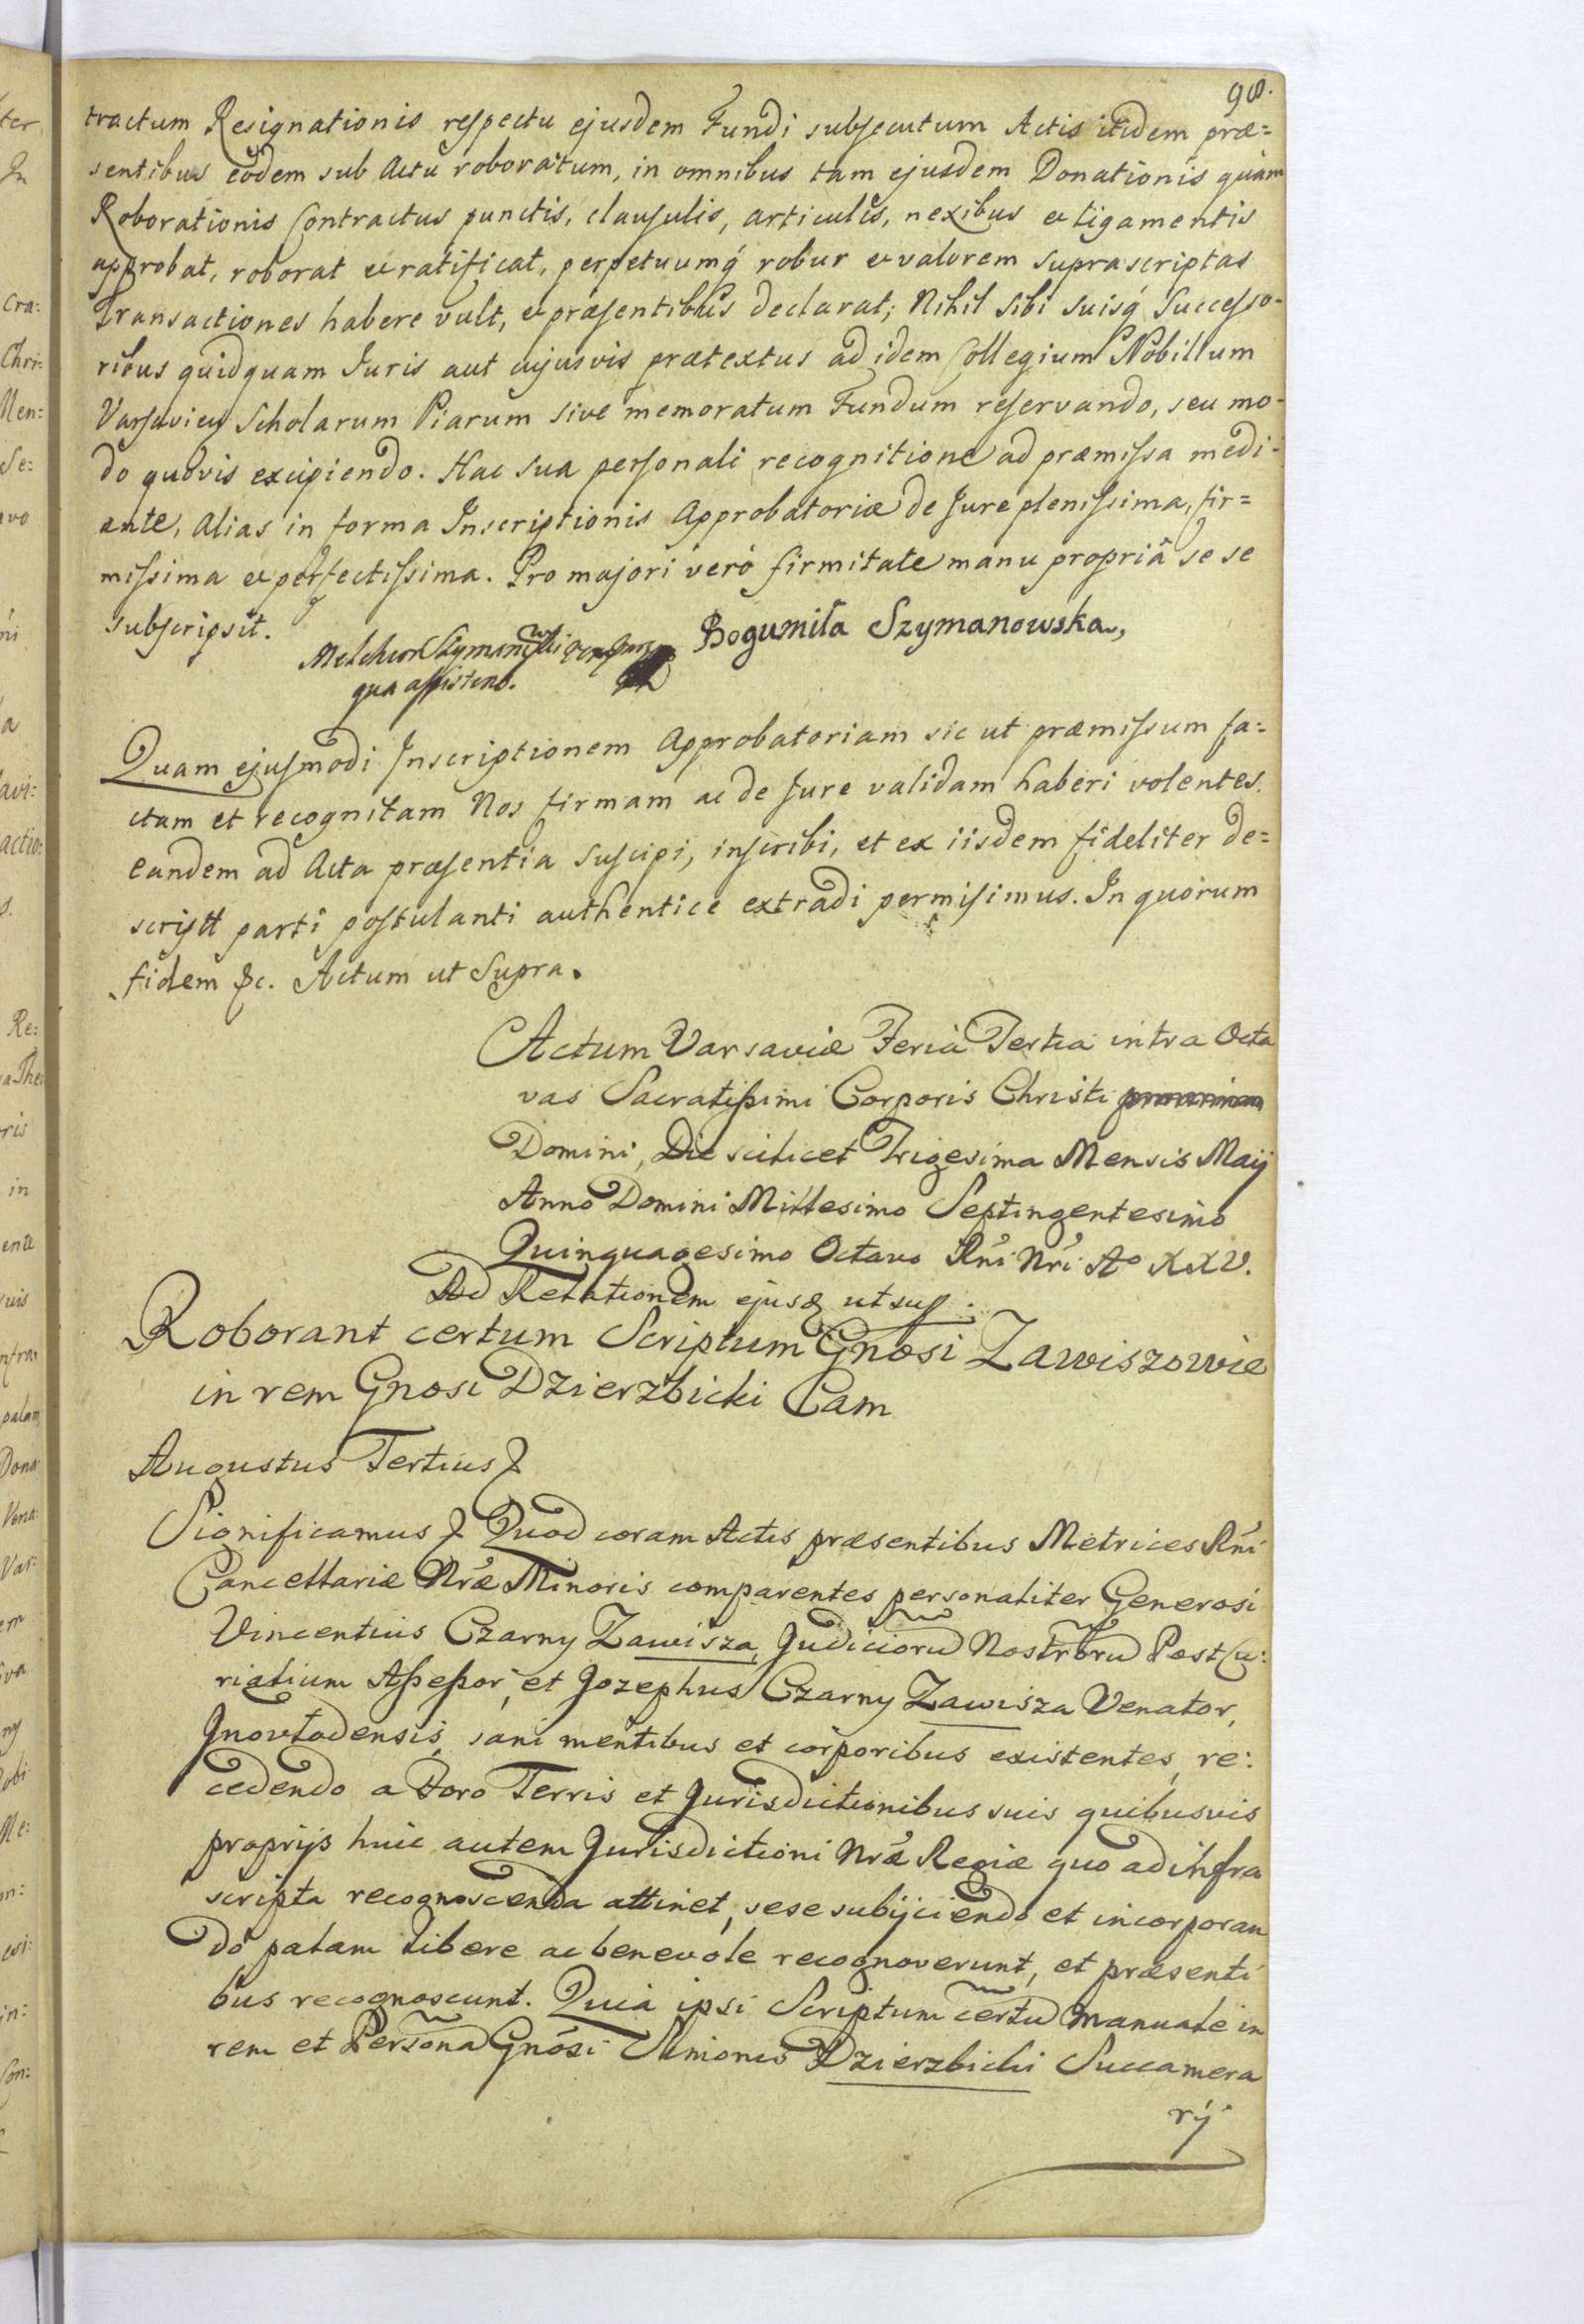 98.
tractum Resignationis respectu ejusdem Fundi subsecutum Actis itidem præ=
sentibus eodem sub Actu roboratum, in omnibus tam ejusdem Donationis quàm
Roborationis Contractus punctis, clausulis, articulis, nexibus et ligamentis
approbat, roborat et ratificat, perpetuumq́ robur et valorem suprascriptas
Transactiones habere vult, et præsentibus declarat; Nihil sibi suisq́ Successo-
ribus quidquam Juris aut cujusvis prætextus ad idem Collegium Nobilium
Varsavien Scholarum Piarum sive memoratum Fundum reservando, seu mo-
do quovis excipiendo. Hac sua personali recognitione ad præmissa medi-
ante, alias in forma Inscriptionis Approbatoriæ de Jure plenissima, fir=
missima et perfectissima. Pro majori verò firmitate manu propriâ se se
subscripsit.
Bogumiła Szymanowska,
Melchior Szymanowski
qua assistens.
Quam ejusmodi Inscriptionem Approbatoriam sic ut præmissum fa=
ctam et recognitam Nos firmam ac de Jure validam haberi volentes,
eandem ad Acta præsentia suscipi, inscribi, et ex iisdem fideliter de=
scriptt parti postulanti authentice extradi permisimus. In quorum
fidem &c. Actum ut Supra.
Actum Varsaviæ Feria Tertia intra Octa
vas Sacratissimi Corporis Christi
Domini, Die scilicet Trigesima Mensis Maij
Anno Domini Millesimo Septingentesimo
Quinquagesimo Octavo Rńi Nŕi Aº XXV.
Ad Relationem ejusq ut sup.
Roborant certum Scriptum Gnosi Zawiszowie
in rem Gnosi Dzierzbicki Cam
Augustus Tertius &
Significamus & Quod coram Actis præsentibus Metrices Rńi
Cancellariæ Nŕæ Minoris comparentes personaliter Generosi
Vincentius Czarny Zawisza, Judiciorũ Nostrorũ Post Cu:
rialium Assessor, et Jozephus Czarny Zawisza Venator,
Jnowłodensis, sani mentibus et corporibus existentes, re:
cedendo a Foro Terris et Jurisdictionibus suis quibusvis
proprijs huic autem Jurisdictioni Nŕæ Regiæ quo ad infra
scripta recognoscenda attinet, sese subijciendo et incorporan
do palam libere ac benevole recognoverunt, et præsenti
bus recognoscunt. Quia ipsi Scriptum certũ manuale in
rem et Personã Gnósi Simonis Dzierzbicki Succamera
rij